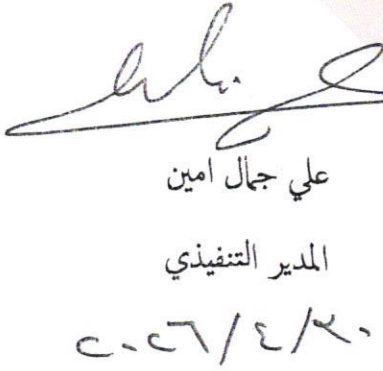 علي جمال امين
المدير التنفيذي
٢٠٢٦/٤/٢٠